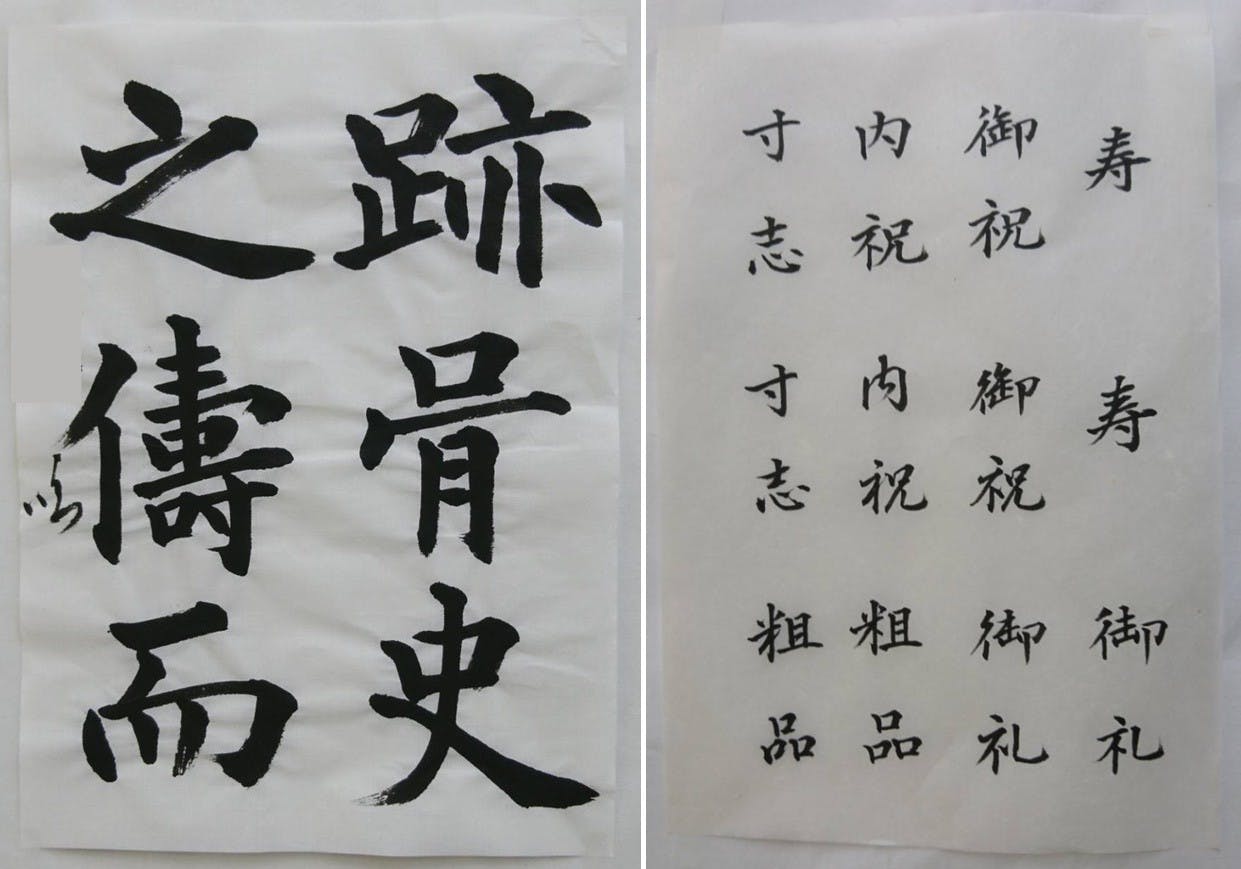 跡骨史
之儔而
寿 寿 御礼
御祝 御祝 御礼
内祝 内祝 粗品
寸志 寸志 粗品